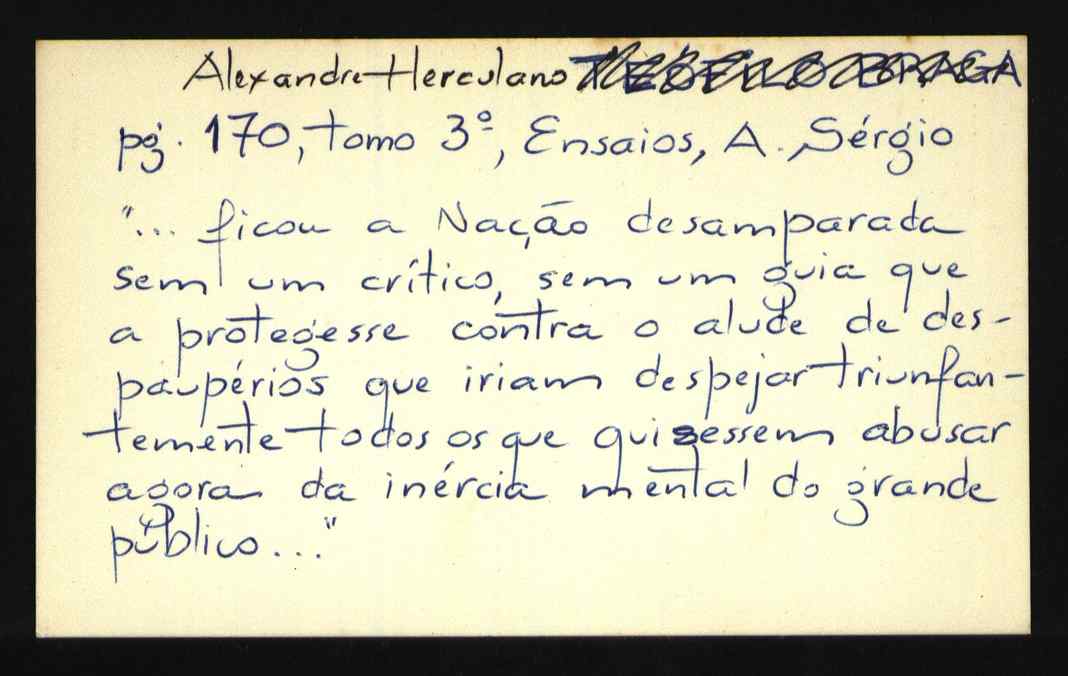 Alexandre Herculano TEÓFILO BRAGA
pg. 170, tomo 3º, Ensaios, A. Sérgio
"... ficou a Nação desamparada
sem um crítico, sem um guia que
a protegesse contra o alude de des-
paupérios que iriam despejar triunfan-
temente todos os que quisessem abusar
agora da inércia mental do grande
público..."